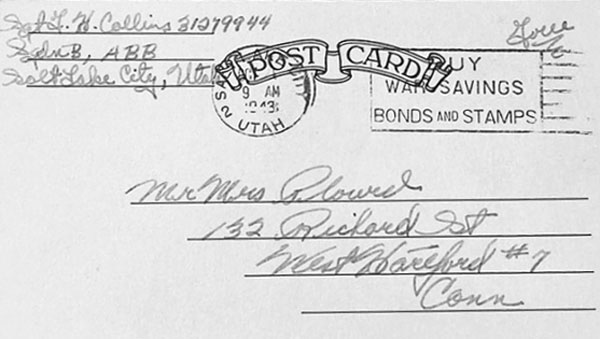 Sgt F. W. Collins 31279944
Sqdn B, ABB
Salt Lake City, Utah
Free
POST CARD
9 AM
1943
UTAH
BUY
WAR SAVINGS
BONDS AND STAMPS
Mr Mrs Plowd
132 Richard St
West Hartford #7
Conn